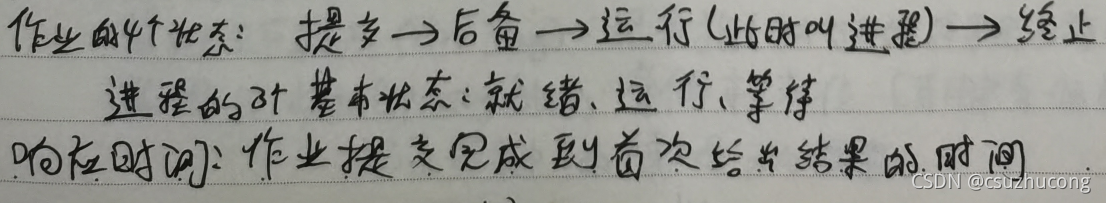 作业的4个状态: 提交→后备→运行(此时叫进程)→终止
进程的3个基本状态:就绪、运行、等待
响应时间:作业提交完成到首次给出结果的时间
CSDN @csuzhucong